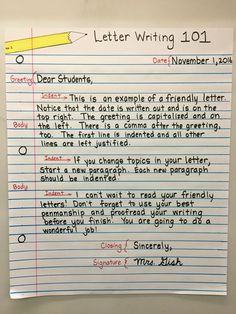 Letter Writing 101
Date{ November 1, 2016
Greeting{ Dear Students,
Indent→ This is an example of a friendly letter.
Notice that the date is written out and is on the
top right. The greeting is capitalized and on
Body the left. There is a comma after the greeting,
too. The first line is indented and all other
lines are left justified.
Indent→ If you change topics in your letter,
start a new paragraph. Each new paragraph
Body should be indented.
Indent→ I can't wait to read your friendly
letters! Don't forget to use your best
penmanship and proofread your writing
before you finish. You are going to do a
wonderful job!
Closing{ Sincerely,
Signature{ Mrs. Gish